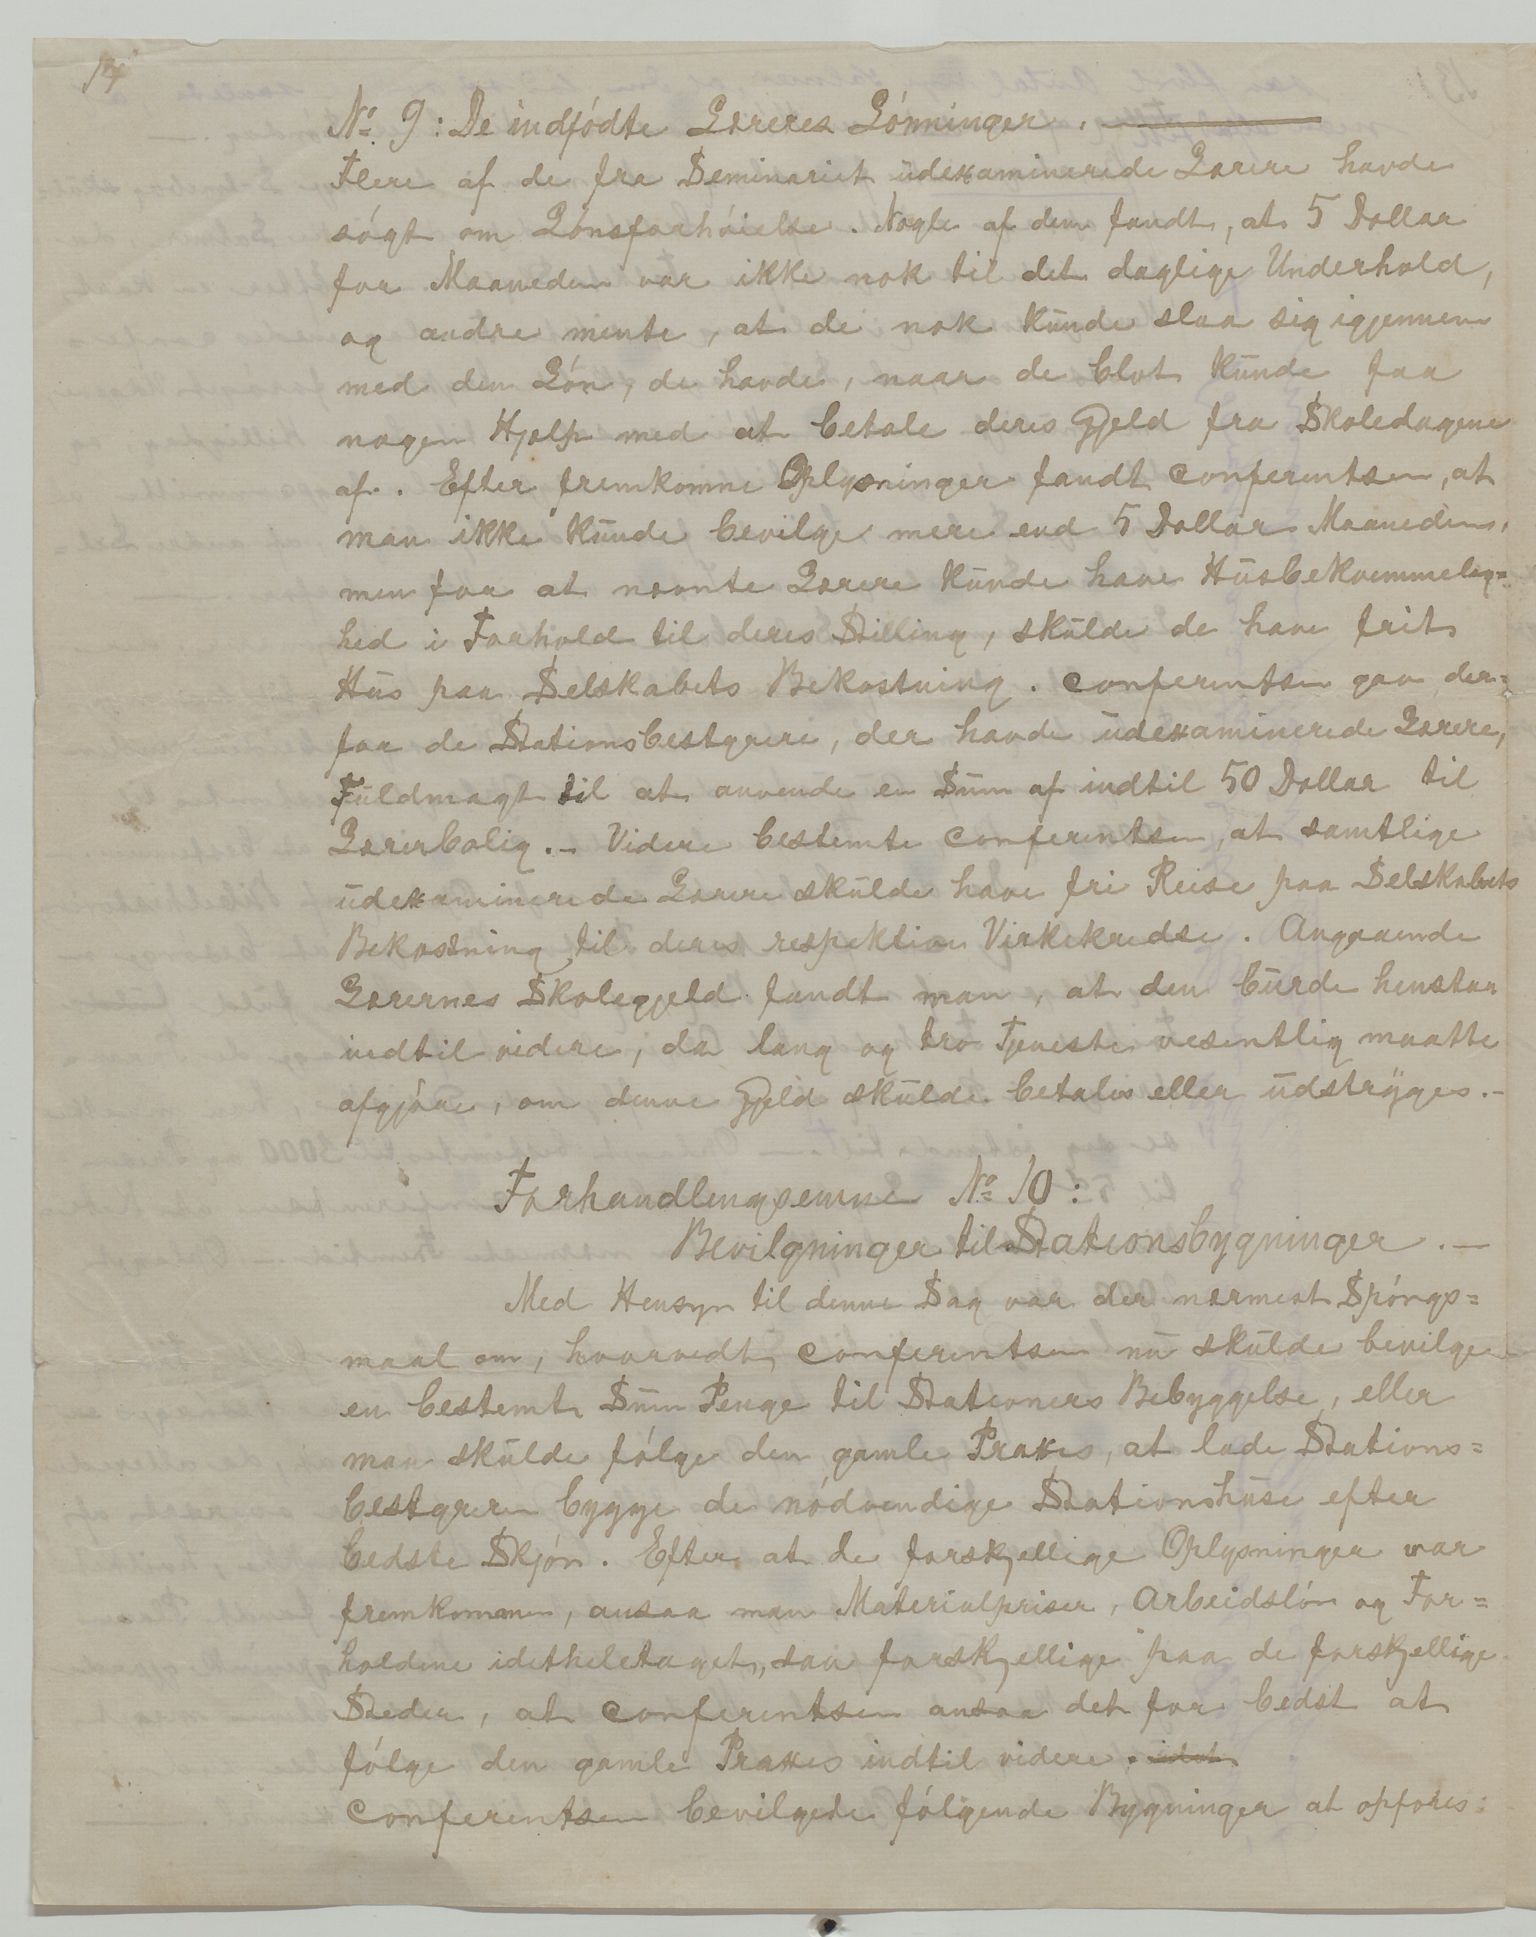 14
No 9: De indfödte Læreres Lönninger. —
Flere af de fra Seminariet udexaminerede Lærere havde
sögt om Lönsforhöielse. Nogle af dem fandt, at 5 Dollar
for Maaneden var ikke nok til det daglige Underhold,
og andre mente, at de nok kunde slaa sig igjennem
med den Lön, de havde, naar de blot kunde faa
nogen Hjælp med at betale deres Gjeld fra Skoledagene
af. Efter fremkomne Oplysninger fandt Conferentsen, at
man ikke kunde bevilge mere end 5 Dollar Maaneden,
men for at nævnte Lærere kunde have Husbekvemmelig=
hed i Forhold til deres Stilling, skulde de have frit
Hus paa Selskabets Bekostning. Conferentsen gav der=
for de Stationsbestyrere, der havde udexaminerede Lærere,
Fuldmagt til at anvende en Sum af indtil 50 Dollar til
Lærerbolig. — Videre bestemte Conferentsen, at samtlige
udexaminerede Lærere skulde have fri Reise paa Selskabets
Bekostning til deres respektive Virkekredse. Angaaende
Lærernes Skolegjeld fandt man, at den burde henstaa
indtil videre, da lang og tro Tjeneste væsentlig maatte
afgjöre, om denne Gjeld skulde betales eller udstryges. —
Forhandlingsemne No 10:
Bevilgninger til Stationsbygninger. —
Med Hensyn til denne Sag var der nærmest Spörgs=
maal om, hvorvidt Conferentsen nu skulde bevilge
en bestemt Sum Penge til Stationers Bebyggelse, eller
man skulde fölge den gamle Praxes, at lade Stations=
bestyreren bygge de nödvendige Stationshuse efter
bedste Skjön. Efter at de forskjellige Oplysninger var
fremkommen, ansaa man Materialpriser, Arbeidslön og For=
holdene idetheletaget, saa forskjellige paa de forskjellige
Steder, at Conferentsen ansaa det for bedst at
fölge den gamle Praxes indtil videre.
Conferentsen bevilgede fölgende Bygninger at opföres: